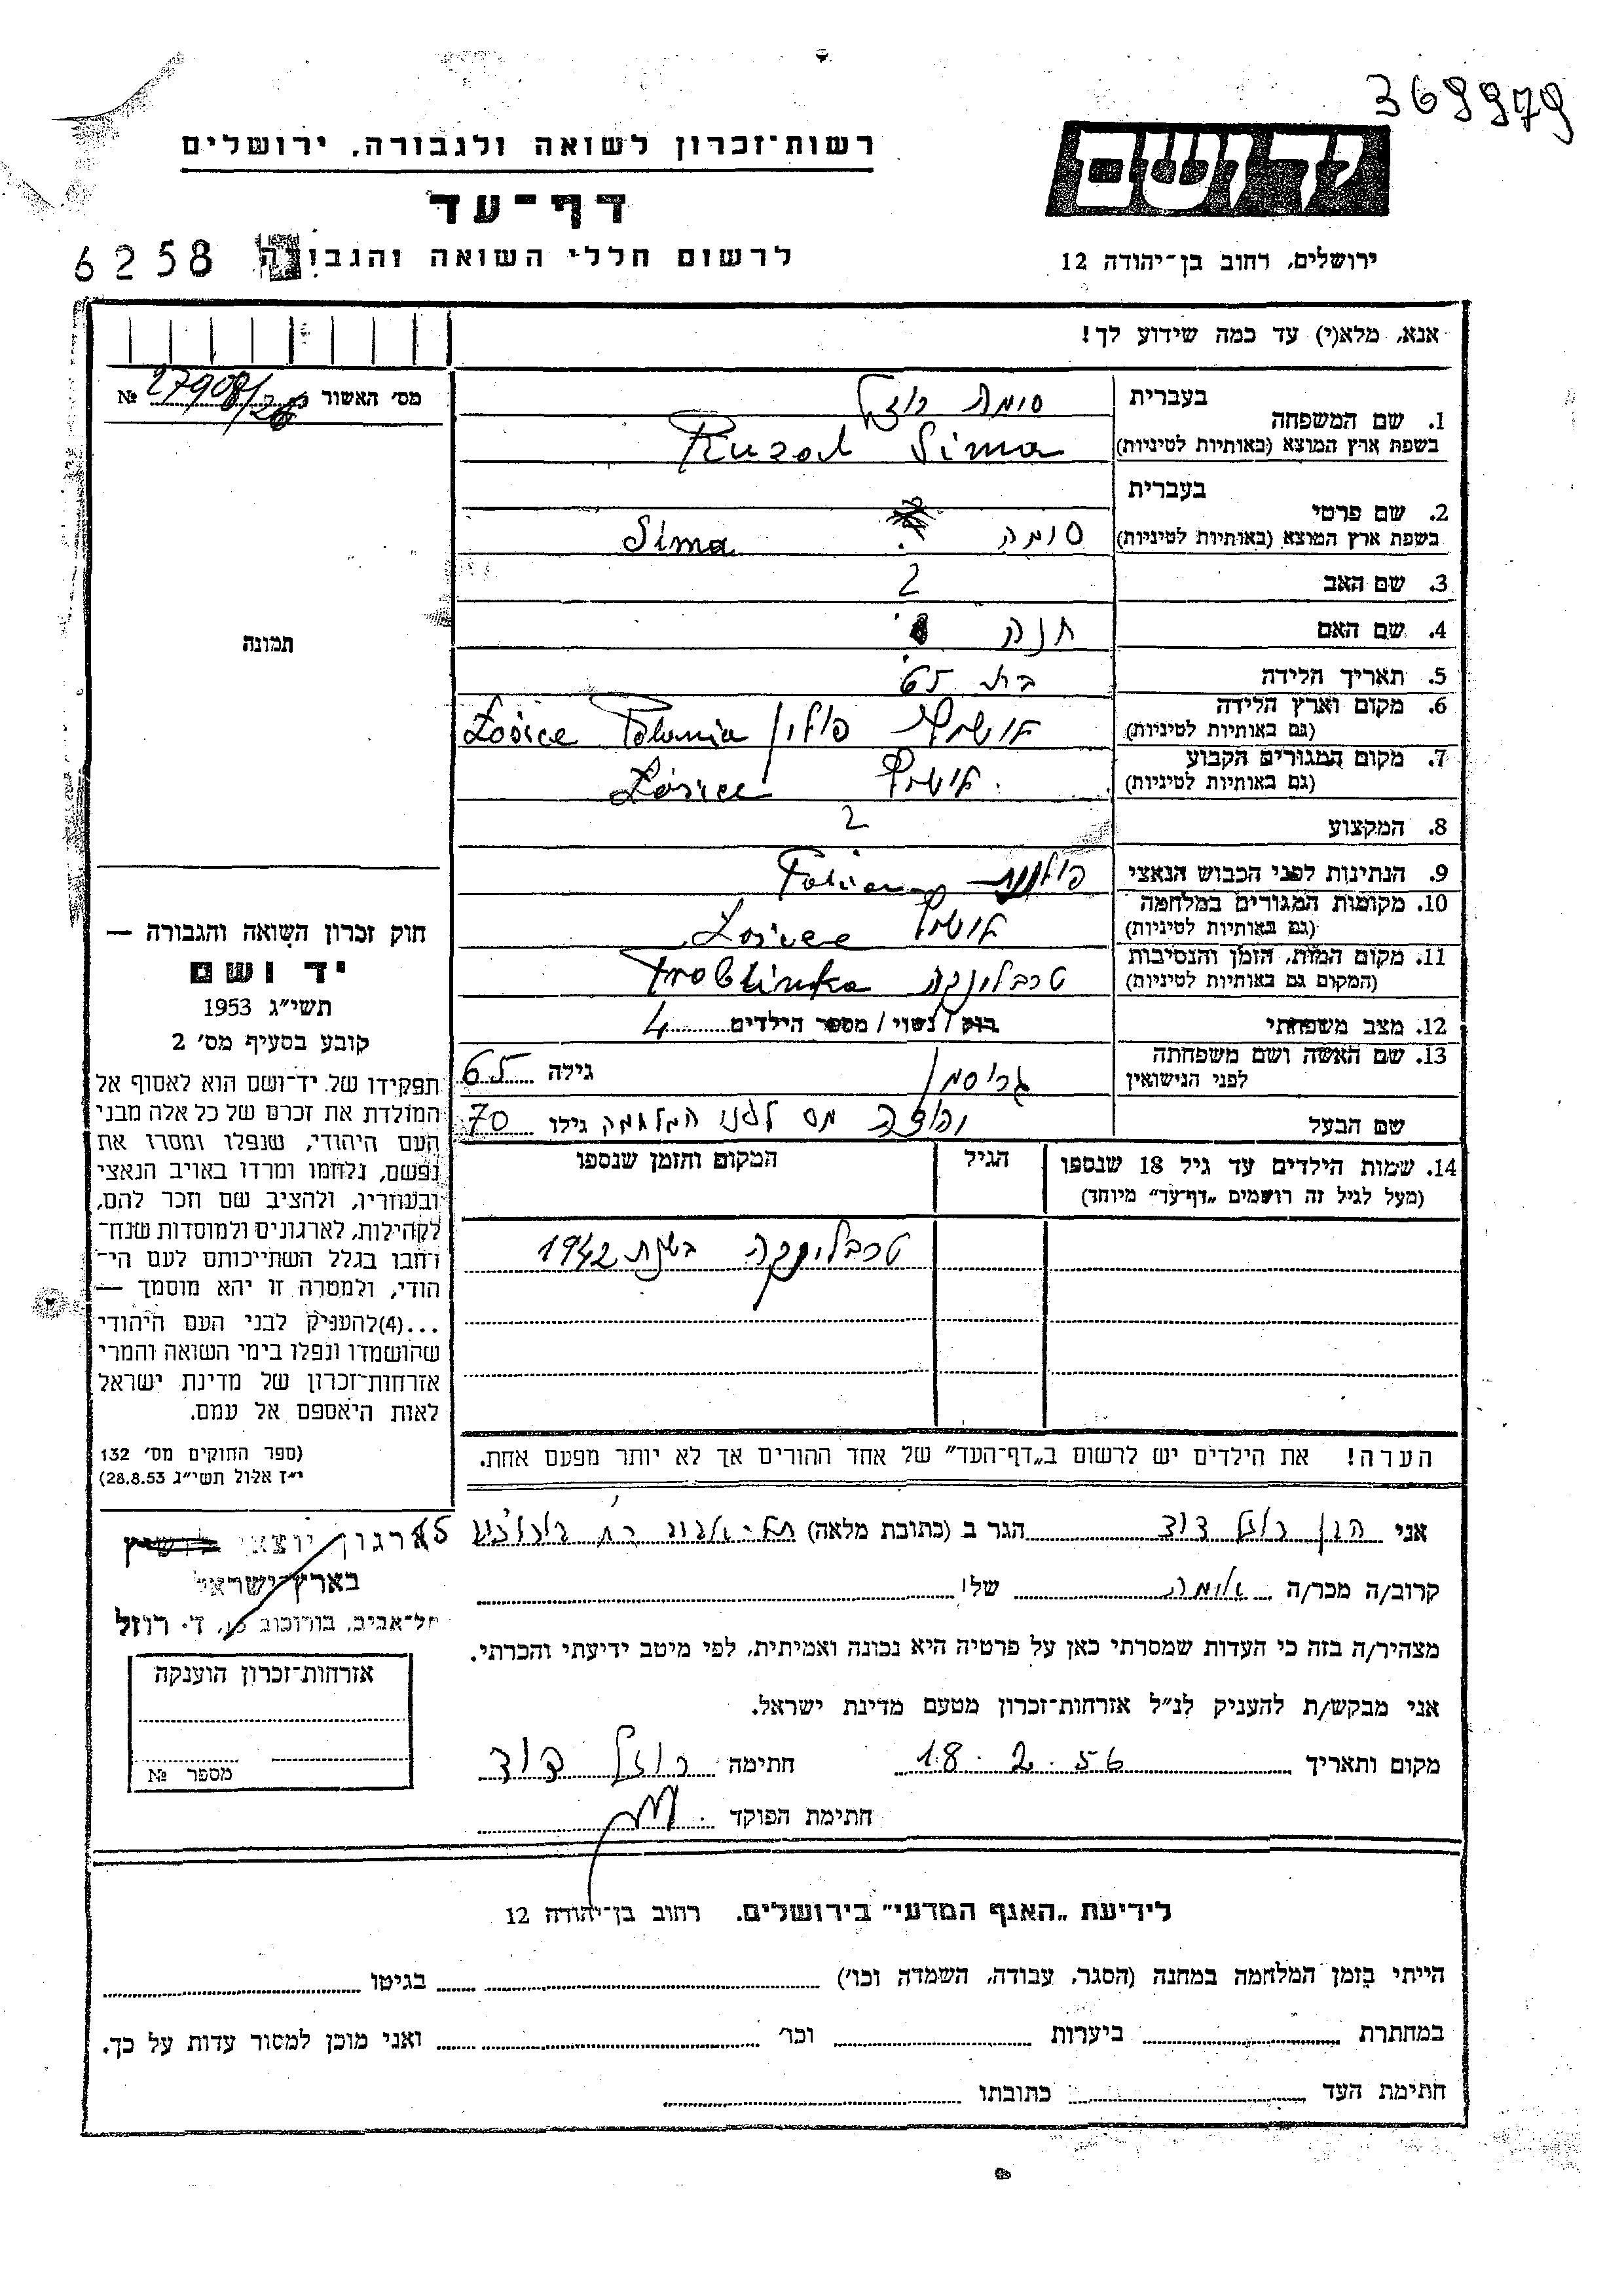 369979
יד ושם
רשות־זכרון לשואה ולגבורה, ירושלים
דף־עד
לרשום חללי השואה והגבורה
6258
ירושלים, רחוב בן־יהודה 12
אנא, מלא(י) עד כמה שידוע לך!
מס׳ האשור № 27908/26
תמונה
1. שם המשפחה
בעברית סימה רוזל
בשפת ארץ המוצא (באותיות לטיניות) Ruzal Sima
2. שם פרטי
בעברית
בשפת ארץ המוצא (באותיות לטיניות) סימה Sima
3. שם האב ?
4. שם האם חנה
5. תאריך הלידה בת 65
6. מקום וארץ הלידה
(גם באותיות לטיניות) פולין Łosice Polonia
7. מקום המגורים הקבוע
(גם באותיות לטיניות) Łosice
8. המקצוע ?
9. הנתינות לפני הכבוש הנאצי פולנית
10. מקומות המגורים במלחמה
(גם באותיות לטיניות) Łosice
11. מקום המות, הזמן והנסיבות
(המקום גם באותיות לטיניות) טרבלינקה Treblinka
12. מצב משפחתי רווק / נשוי / מספר הילדים 4
13. שם האשה ושם משפחתה
לפני הנישואין גריסמן גילה 65
שם הבעל מת לפני המלחמה גילו 70
14. שמות הילדים עד גיל 18 שנספו
(מעל לגיל זה רושמים „דף־עד” מיוחד)
הגיל
המקום והזמן שנספו
טרבלינקה בשנת 1942
הערה! את הילדים יש לרשום ב„דף־העד” של אחד ההורים אך לא יותר מפעם אחת.
חוק זכרון השואה והגבורה —
יד ושם
תשי״ג 1953
קובע בסעיף מס׳ 2
תפקידו של יד־ושם הוא לאסוף אל
המולדת את זכרם של כל אלה מבני
העם היהודי, שנפלו ומסרו את
נפשם, נלחמו ומרדו באויב הנאצי
ובעוזריו, ולהציב שם וזכר להם,
לקהילות, לארגונים ולמוסדות שנח־
רחבו בגלל השתייכותם לעם הי־
הודי, ולמטרה זו יהא מוסמך —
...(4)להעניק לבני העם היהודי
שהושמדו ונפלו בימי השואה והמרי
אזרחות־זכרון של מדינת ישראל
לאות היאספם אל עמם.
(ספר החוקים מס׳ 132
י״ז אלול תשי״ג 28.8.53)
אני רוזל דוד הגר ב (כתובת מלאה) תל-אביב 15
קרוב/ה מכר/ה של׳
מצהיר/ה בזה כי העדות שמסרתי כאן על פרטיה היא נכונה ואמיתית, לפי מיטב ידיעתי והכרתי.
אני מבקש/ת להעניק לנ״ל אזרחות־זכרון מטעם מדינת ישראל.
מקום ותאריך 18.2.56 חתימה רוזל דוד
חתימת הפוקד
ארגון יוצאי
בארץ־ישראל
תל־אביב, בורוכוב ד. רוזל
אזרחות־זכרון הוענקה
מספר №
לידיעת „האגף המדעי” בירושלים, רחוב בן־יהודה 12
הייתי בזמן המלחמה במחנה (הסגר, עבודה, השמדה וכו׳) בגיטו
במחתרת ביערות וכו׳ ואני מוכן למסור עדות על כך.
חתימת העד כתובתו